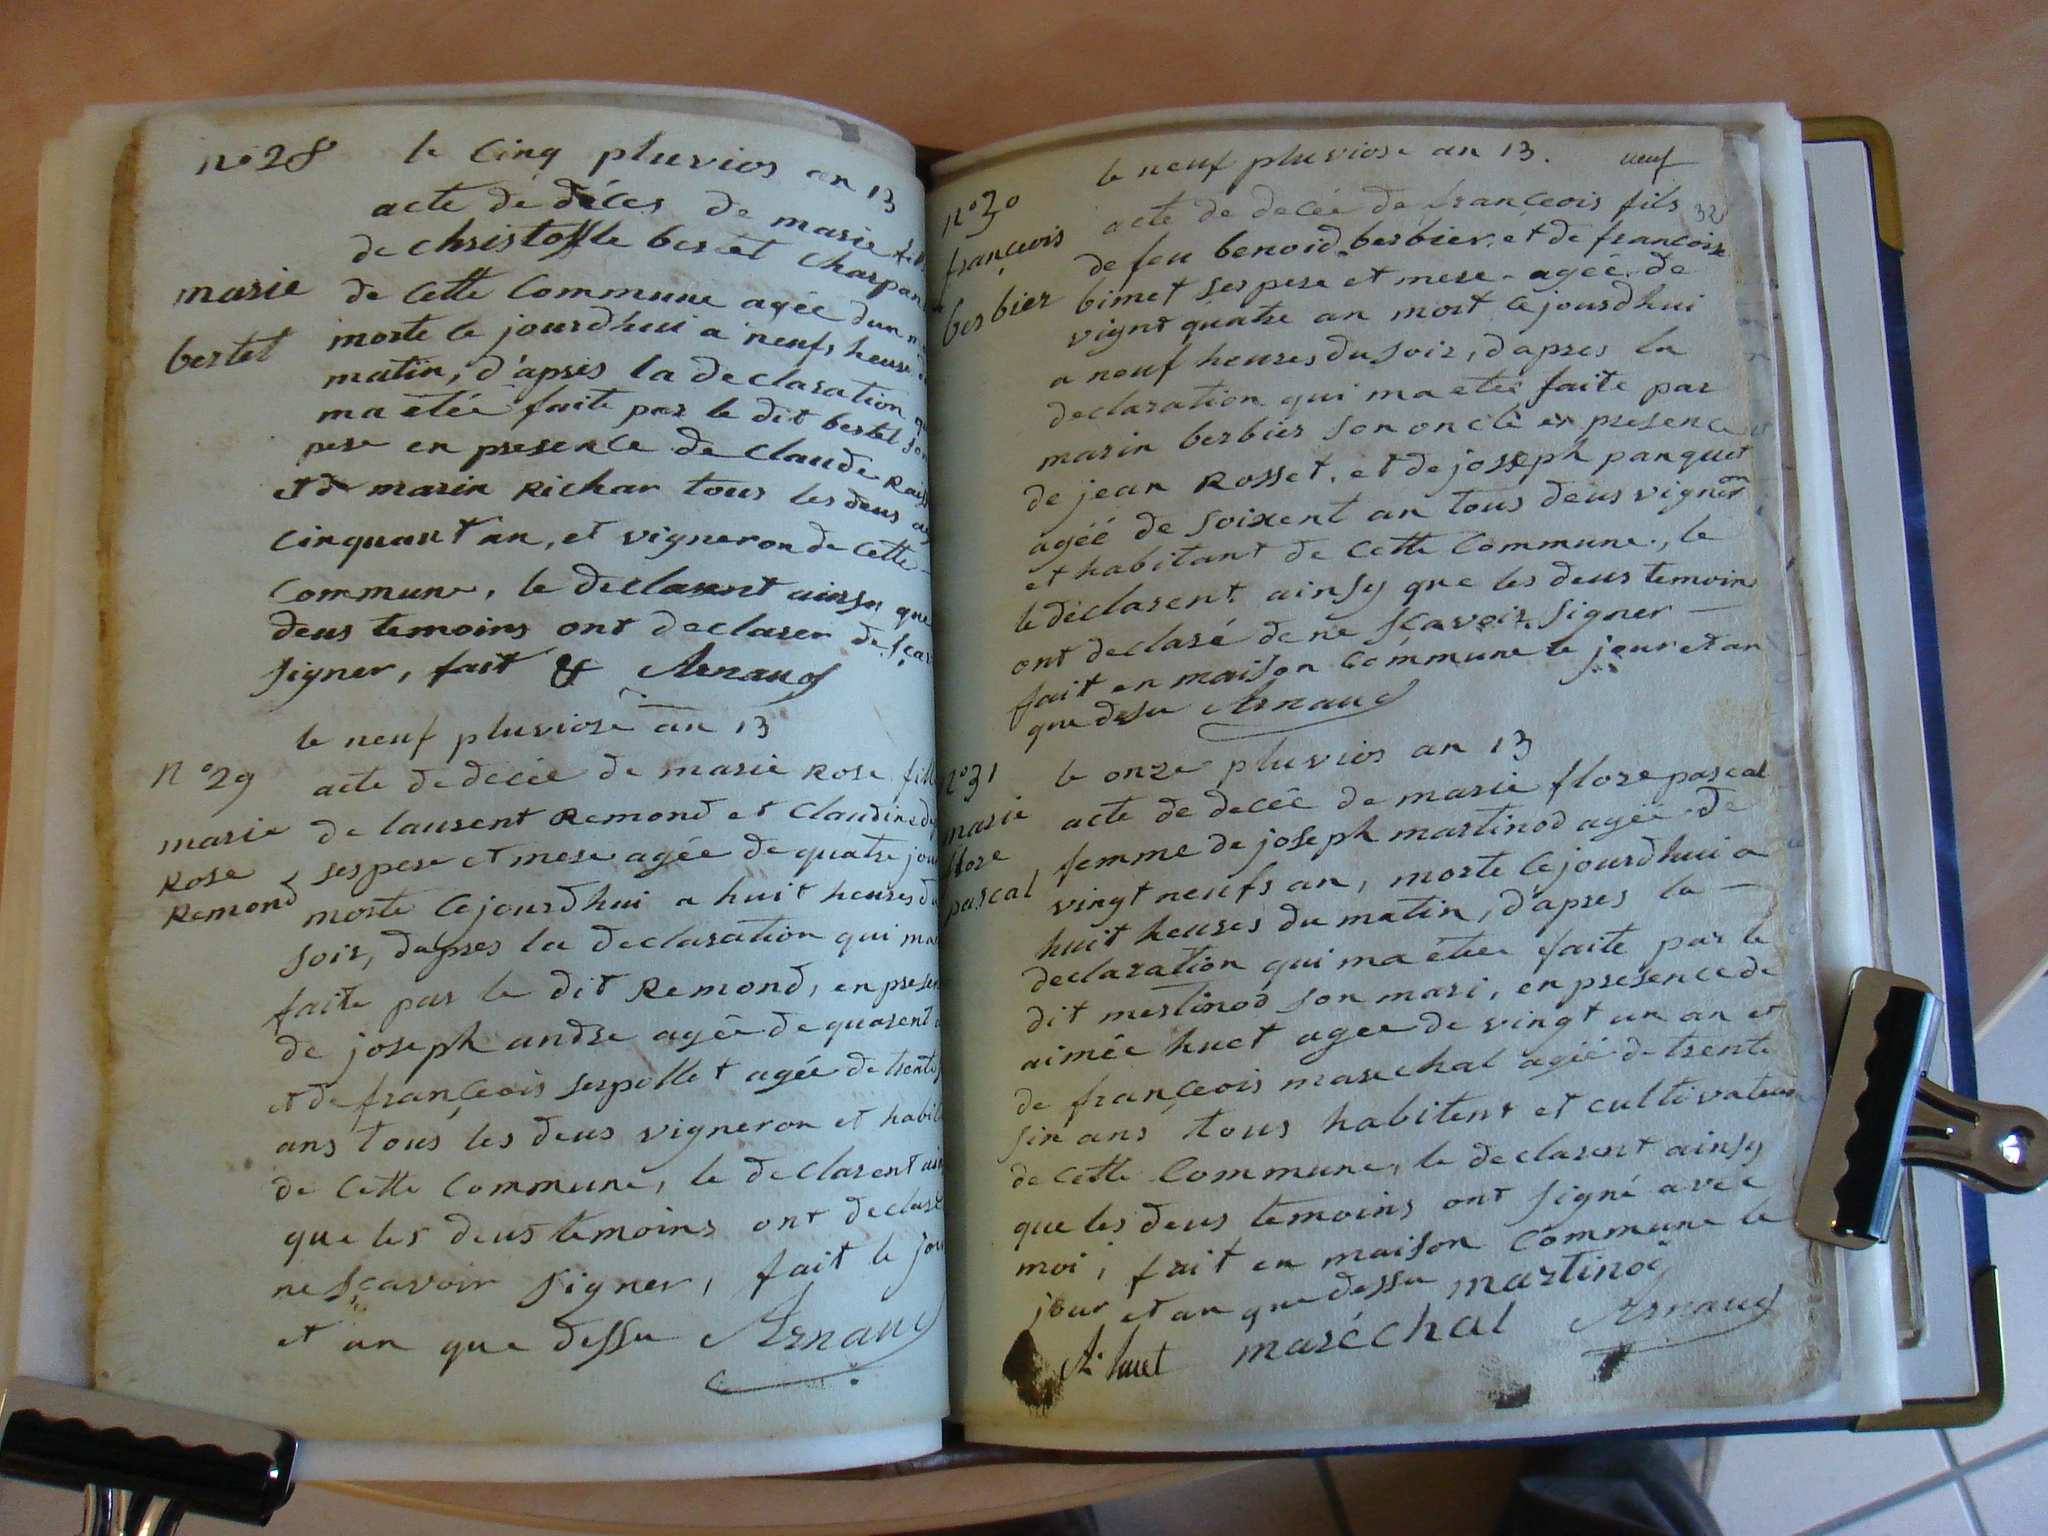 n° 28
le Cinq pluvios an 13
acte de déces de marie
de christoffle bertet charpan
marie
bertet
de Cette Commune agée dun
morte ce jourdhui a neufs heure
matin, d'apres la declaration
ma etée faite par le dit bertet son
pere en presence de claude
et de marin Richar tous les deus
Cinquant an, et vigneron de Cette
Commune, le declarent ainsy que
deus temoins ont declarer de
signer, fait & Arnaud
le neuf pluviose an 13
N° 29
marie
Rose
Remond
acte de decée de marie Rose
de laurent Remond et Claudine
ses pere et mere agée de quatre
morte Cejourdhui a huit heures
soir, dapres la declaration qui
faite par le dit Remond, en
de joseph andre agée de quarent
et de franceois serpollet agée de
ans tous les deus vigneron et
de Cette Commune, le declarent
que les deus temoins ont declaré
ne sçavoir signer, fait le
et an que dessu Arnaud
neuf
32
le neuf pluviose an 13.
n° 30
franceois
berbier
acte de decée de franceois fils
de feu benoid berbier et de francoise
bimet ses pere et mere agée de
vignt quatre an mort Cejourdhui
a neuf heures du soir, dapres la
declaration qui ma etée faite par
marin berbier son oncle en presence
de jean Rosset, et de joseph panquet
agéé de soixent an tous deus vigneron
et habitant de Cette Commune, le
le déclarent ainsy que les deus temoins
ont declaré de ne sçavoir signer
fait en maison Commune le jour et an
que desu Arnaud
le onze pluvios an 13
n° 31
marie
flore
pascal
acte de decée de marie flore pascal
femme de joseph martinod agée de
vingt neufs an, morte Cejourdhui a
huit heures du matin, d'apres la
declaration qui ma étée faite par le
dit mertinod son mari, en presence de
aimée huet agee de vingt un an et
de franceois marechal agéé de trente
sin ans tous habitent et cultivateur
de Cette Commune, le declarent ainsy
que les deus temoins ont signé avec
moi, fait en maison Commune le
jour et an que dessu martinod
A. huet maréchal Arnaud